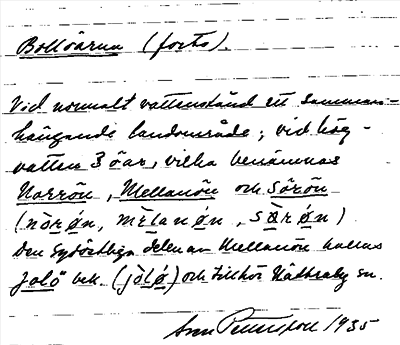 Bollöarna (forts).
Vid normalt vattenstånd ett samman-
hängande landområde; vid hög-
vatten 3 öar, vilka benämnas
Norrön, Mellanön och Sörön
(nòrø̀n, mèlanø̀n, sø̀rø̀n)
Den sydöstliga delen av Mellanön kallas
Jolö bek. (jòlø̀) och tillhör Nättraby sn.
Sven Petersson 1935